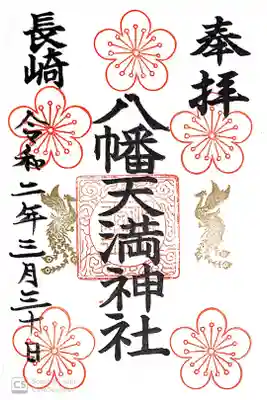 奉拝
八幡天満神社
長崎
令和二年三月三十日
CS